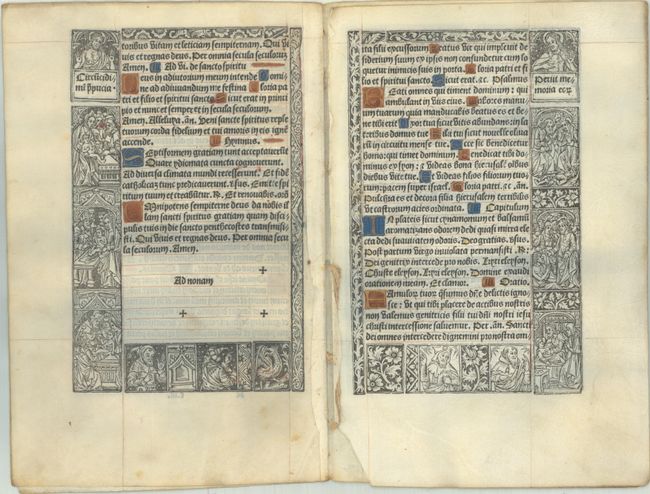 toribus vitam et leticiam sempiternam. Qui vi
vis et regnas deus. Per omnia secula seculorum
Amen. Ad vi. de sancto spiritu
Deus in adiutorium meum intende Domi
ne ad adiuvandum me festina Gloria pa
tri et filio et spiritui sancto Sicut erat in princi
pio et nunc et semper et in secula seculorum.
Amen. Alleluya. añ. Veni sancte spiritus reple
tuorum corda fidelium et tui amoris in eis ignē
accende. Hymnus.
Septiformem gratiam tunc acceptaverūt
Quare ydiomata cuncta cognoverunt.
Ad diversa climata mundi recesserunt. Et fidē
catholicaz tunc predicaverunt. v̄sus. Emitte spi
tum tuum et creabūtur. R. Et renovabis. or̄o.
Omnipotens sempiterne deus da nobis il
lam sancti spiritus gratiam quam disci
pulis tuis in die sancto penthecostes transmisi
sti. Qui vivis et regnas deus. Per omnia secu
la seculorum. Amen.
Ad nonam
ita filii excussorum Beatus vir qui implevit de
siderium suum ex ipsis non confundetur cum lo
quetur inimicis suis in porta. Gloria patri et fi
lio et spiritui sancto. Sicut erat. ꝛc. Psalmus
Beati omnes qui timent dominum: qui
ambulant in viis eius. Labores manu
um tuarum quia manducabis beatus es et be
ne tibi erit Uxor tua sicut vitis abundans: in la
teribus domus tue Filii tui sicut novelle oliva
rū in circuitu mense tue. Ecce sic benedicetur
homo: qui timet dominum. Benedicat tibi do
minus ex syon: et videas bona hierusalē. oībus
diebus vite tue. Et videas filios filiorum tuo
rum: pacem super israel. Gloria patri. ꝛc. añ.
Pulchra es et decora filia hierusalem terribilis
ut castrorum acies ordinata. Capitulum
In plateis sicut cynamomum et balsamū
aromatizans odorem dedi: quasi mirra ele
cta dedi suavitatem odoris. Deo gratias. v̄sus.
Post partum virgo inviolata permansisti. R:
Dei genitrix intercede pro nobis. Kyrieleyson.
Christe eleyson. Kyri eleyson. Domine exaudi
orationem meam. Et clamor. Oratio.
Famulorz tuorz qs̄umus dn̄e delictis igno
sce: ut qui tibi placere de actibus nostris
non valemus genitricis filii tui dn̄i nostri iesu
christi intercessione salvemur. Per. añ. Sancti
dei omnes intercedere dignemini pro nostra om̄i